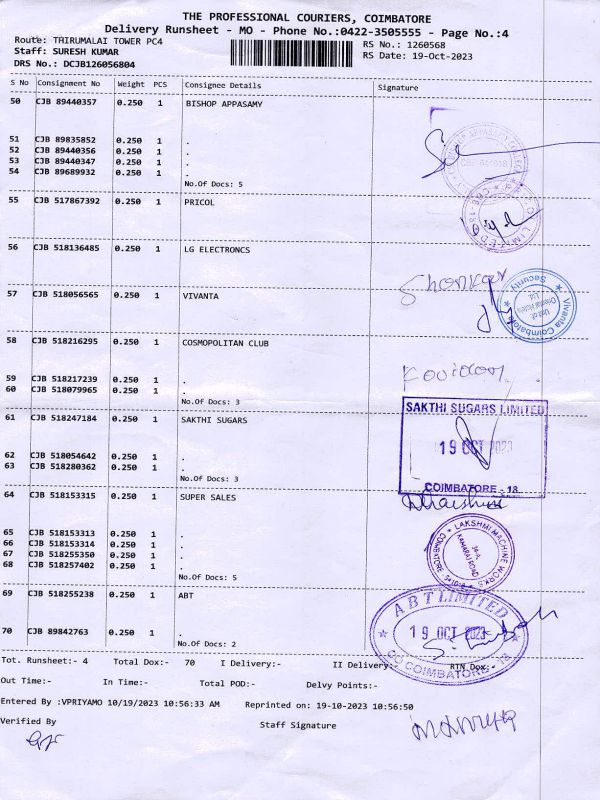 THE PROFESSIONAL COURIERS, COIMBATORE
Delivery Runsheet - MO - Phone No.:0422-3505555 - Page No.:4
Route: THIRUMALAI TOWER PC4
Staff: SURESH KUMAR
RS No.: 1260568
DRS No.: DCJB126056804
RS Date: 19-Oct-2023
S No Consignment No Weight PCS Consignee Details Signature
50 CJB 89440357 0.250 1 BISHOP APPASAMY
51 CJB 89835852 0.250 1 .
52 CJB 89440356 0.250 1 .
53 CJB 89440347 0.250 1 .
54 CJB 89689932 0.250 1 .
No.Of Docs: 5
55 CJB 517867392 0.250 1 PRICOL
56 CJB 518136485 0.250 1 LG ELECTRONCS
Shankar
57 CJB 518056565 0.250 1 VIVANTA
Vivanta Coimbatore
Security
58 CJB 518216295 0.250 1 COSMOPOLITAN CLUB
59 CJB 518217239 0.250 1 .
60 CJB 518079965 0.250 1 .
No.Of Docs: 3
61 CJB 518247184 0.250 1 SAKTHI SUGARS
SAKTHI SUGARS LIMITED
19 OCT 2023
COIMBATORE - 18
62 CJB 518054642 0.250 1 .
63 CJB 518280362 0.250 1 .
No.Of Docs: 3
64 CJB 518153315 0.250 1 SUPER SALES
65 CJB 518153313 0.250 1 .
66 CJB 518153314 0.250 1 .
67 CJB 518255350 0.250 1 .
68 CJB 518257402 0.250 1 .
No.Of Docs: 5
LAKSHMI MACHINE WORKS
COIMBATORE
69 CJB 518255238 0.250 1 ABT
ABT LIMITED
19 OCT 2023
COIMBATORE - 18
70 CJB 89842763 0.250 1 .
No.Of Docs: 2
Tot. Runsheet:- 4 Total Dox:- 70 I Delivery:- II Delivery:- RTN Dox:-
Out Time:- In Time:- Total POD:- Delvy Points:-
Entered By :VPRIYAMO 10/19/2023 10:56:33 AM Reprinted on: 19-10-2023 10:56:50
Verified By Staff Signature